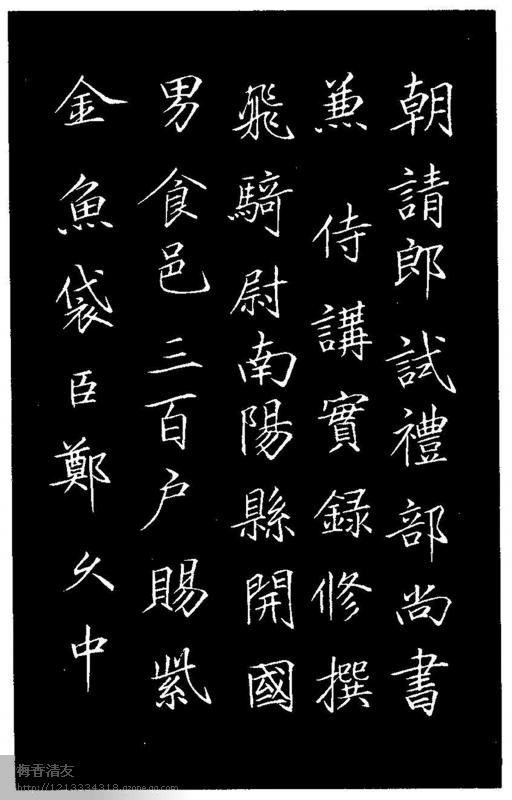 朝請郎試禮部尚書
兼 侍講實録修撰
飛騎尉南陽縣開國
男食邑三百户賜紫
金魚袋臣鄭久中
梅香清友
http://1213334318.qzone.qq.com